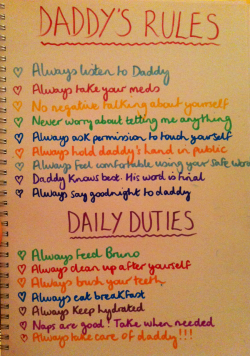 DADDY'S RULES
Always listen to Daddy
Always take your meds
No negative talking about yourself
Never worry about telling me anything
Always ask permission to touch yourself
Always hold daddy's hand in public
Always feel comfortable using your safe word
Daddy knows best. His word is final
Always say goodnight to daddy
DAILY DUTIES
Always feed Bruno
Always clean up after yourself
Always brush your teeth
Always eat breakfast
Always keep hydrated
Naps are good! Take when needed
Always take care of daddy!!!